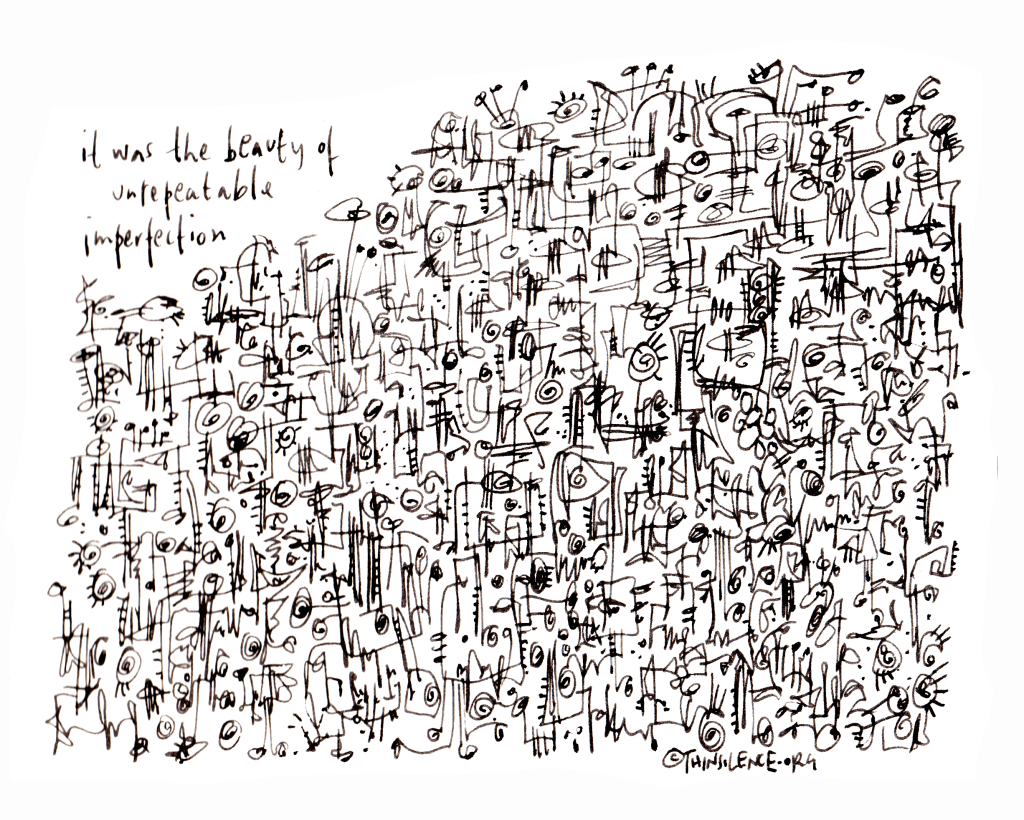 it was the beauty of
unrepeatable
imperfection
©THINSILENCE.ORG